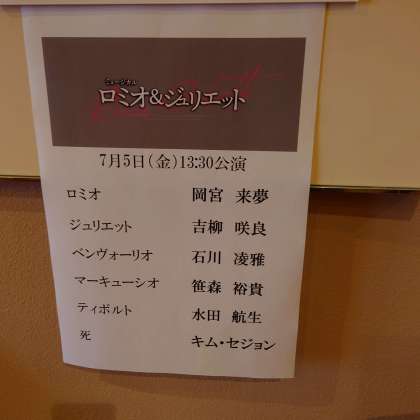 ミュージカル
ロミオ&ジュリエット
7月5日(金)13:30公演
ロミオ 岡宮 来夢
ジュリエット 吉柳 咲良
ベンヴォーリオ 石川 凌雅
マーキューシオ 笹森 裕貴
ティボルト 水田 航生
死 キム・セジョン